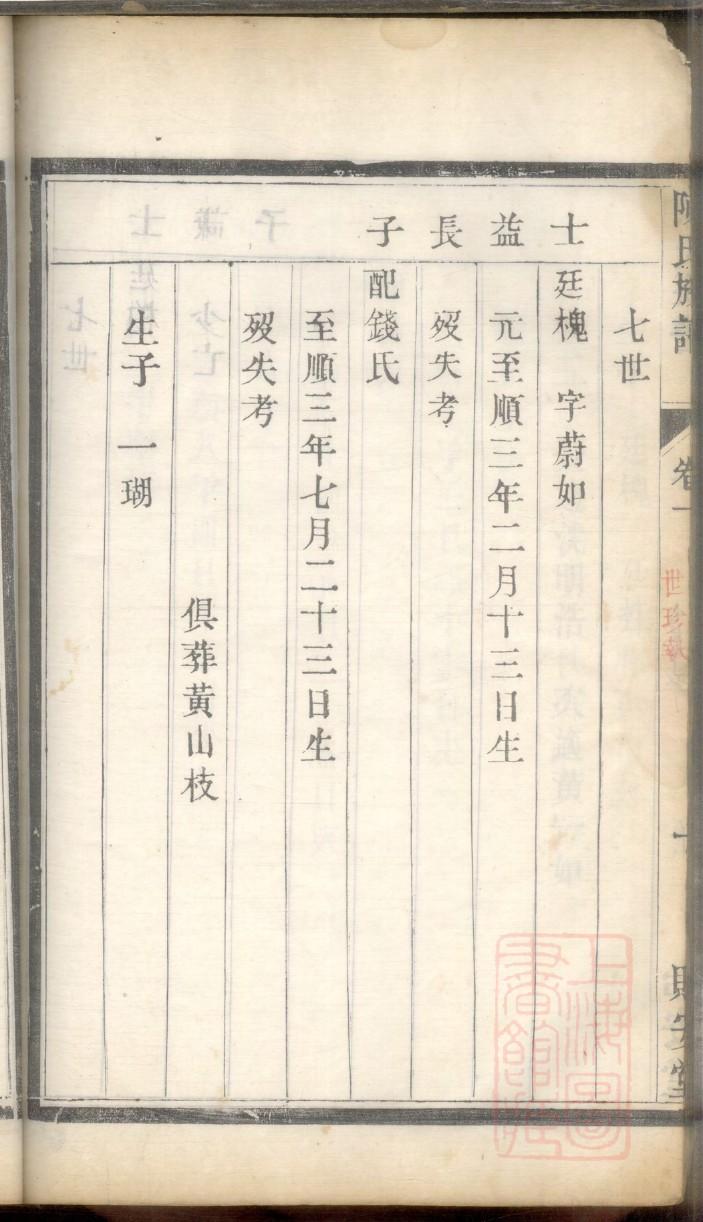 士益長子
七世
廷槐　字蔚如
元至順三年二月十三日生
歿失考
配錢氏
至順三年七月二十三日生
歿失考
俱葬黃山枝
生子　一瑚
氏族譜
卷一
世珍
上海圖書館藏